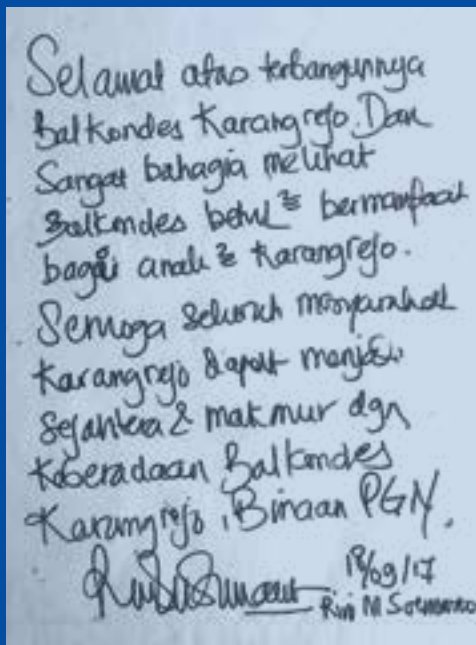 Selamat atas terbangunnya
Balkondes Karangrejo. Dan
Sangat bahagia melihat
Balkondes betul² bermanfaat
bagi anak² Karangrejo.
Semoga seluruh masyarakat
Karangrejo dapat menjadi
sejahtera & makmur dgn
keberadaan Balkondes
Karangrejo, Binaan PGN.
18/09/17
Rini M Soemarno